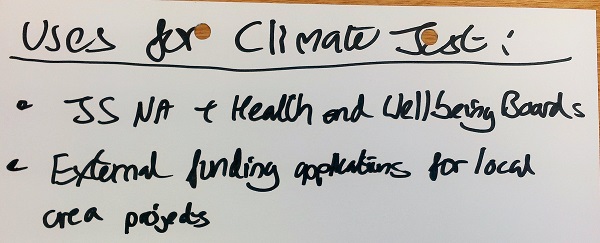 Uses for Climate Just:
• JSNA + Health and Wellbeing Boards
• External funding applications for local
area projects